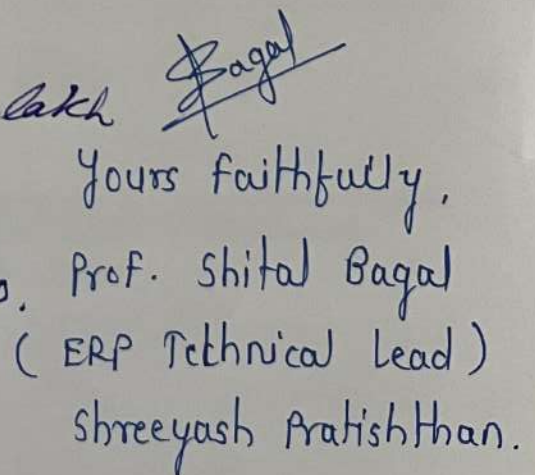 lakh Bagal
Yours faithfully,
Prof. Shital Bagal
( ERP Tethnical Lead )
Shreeyash Pratishthan.